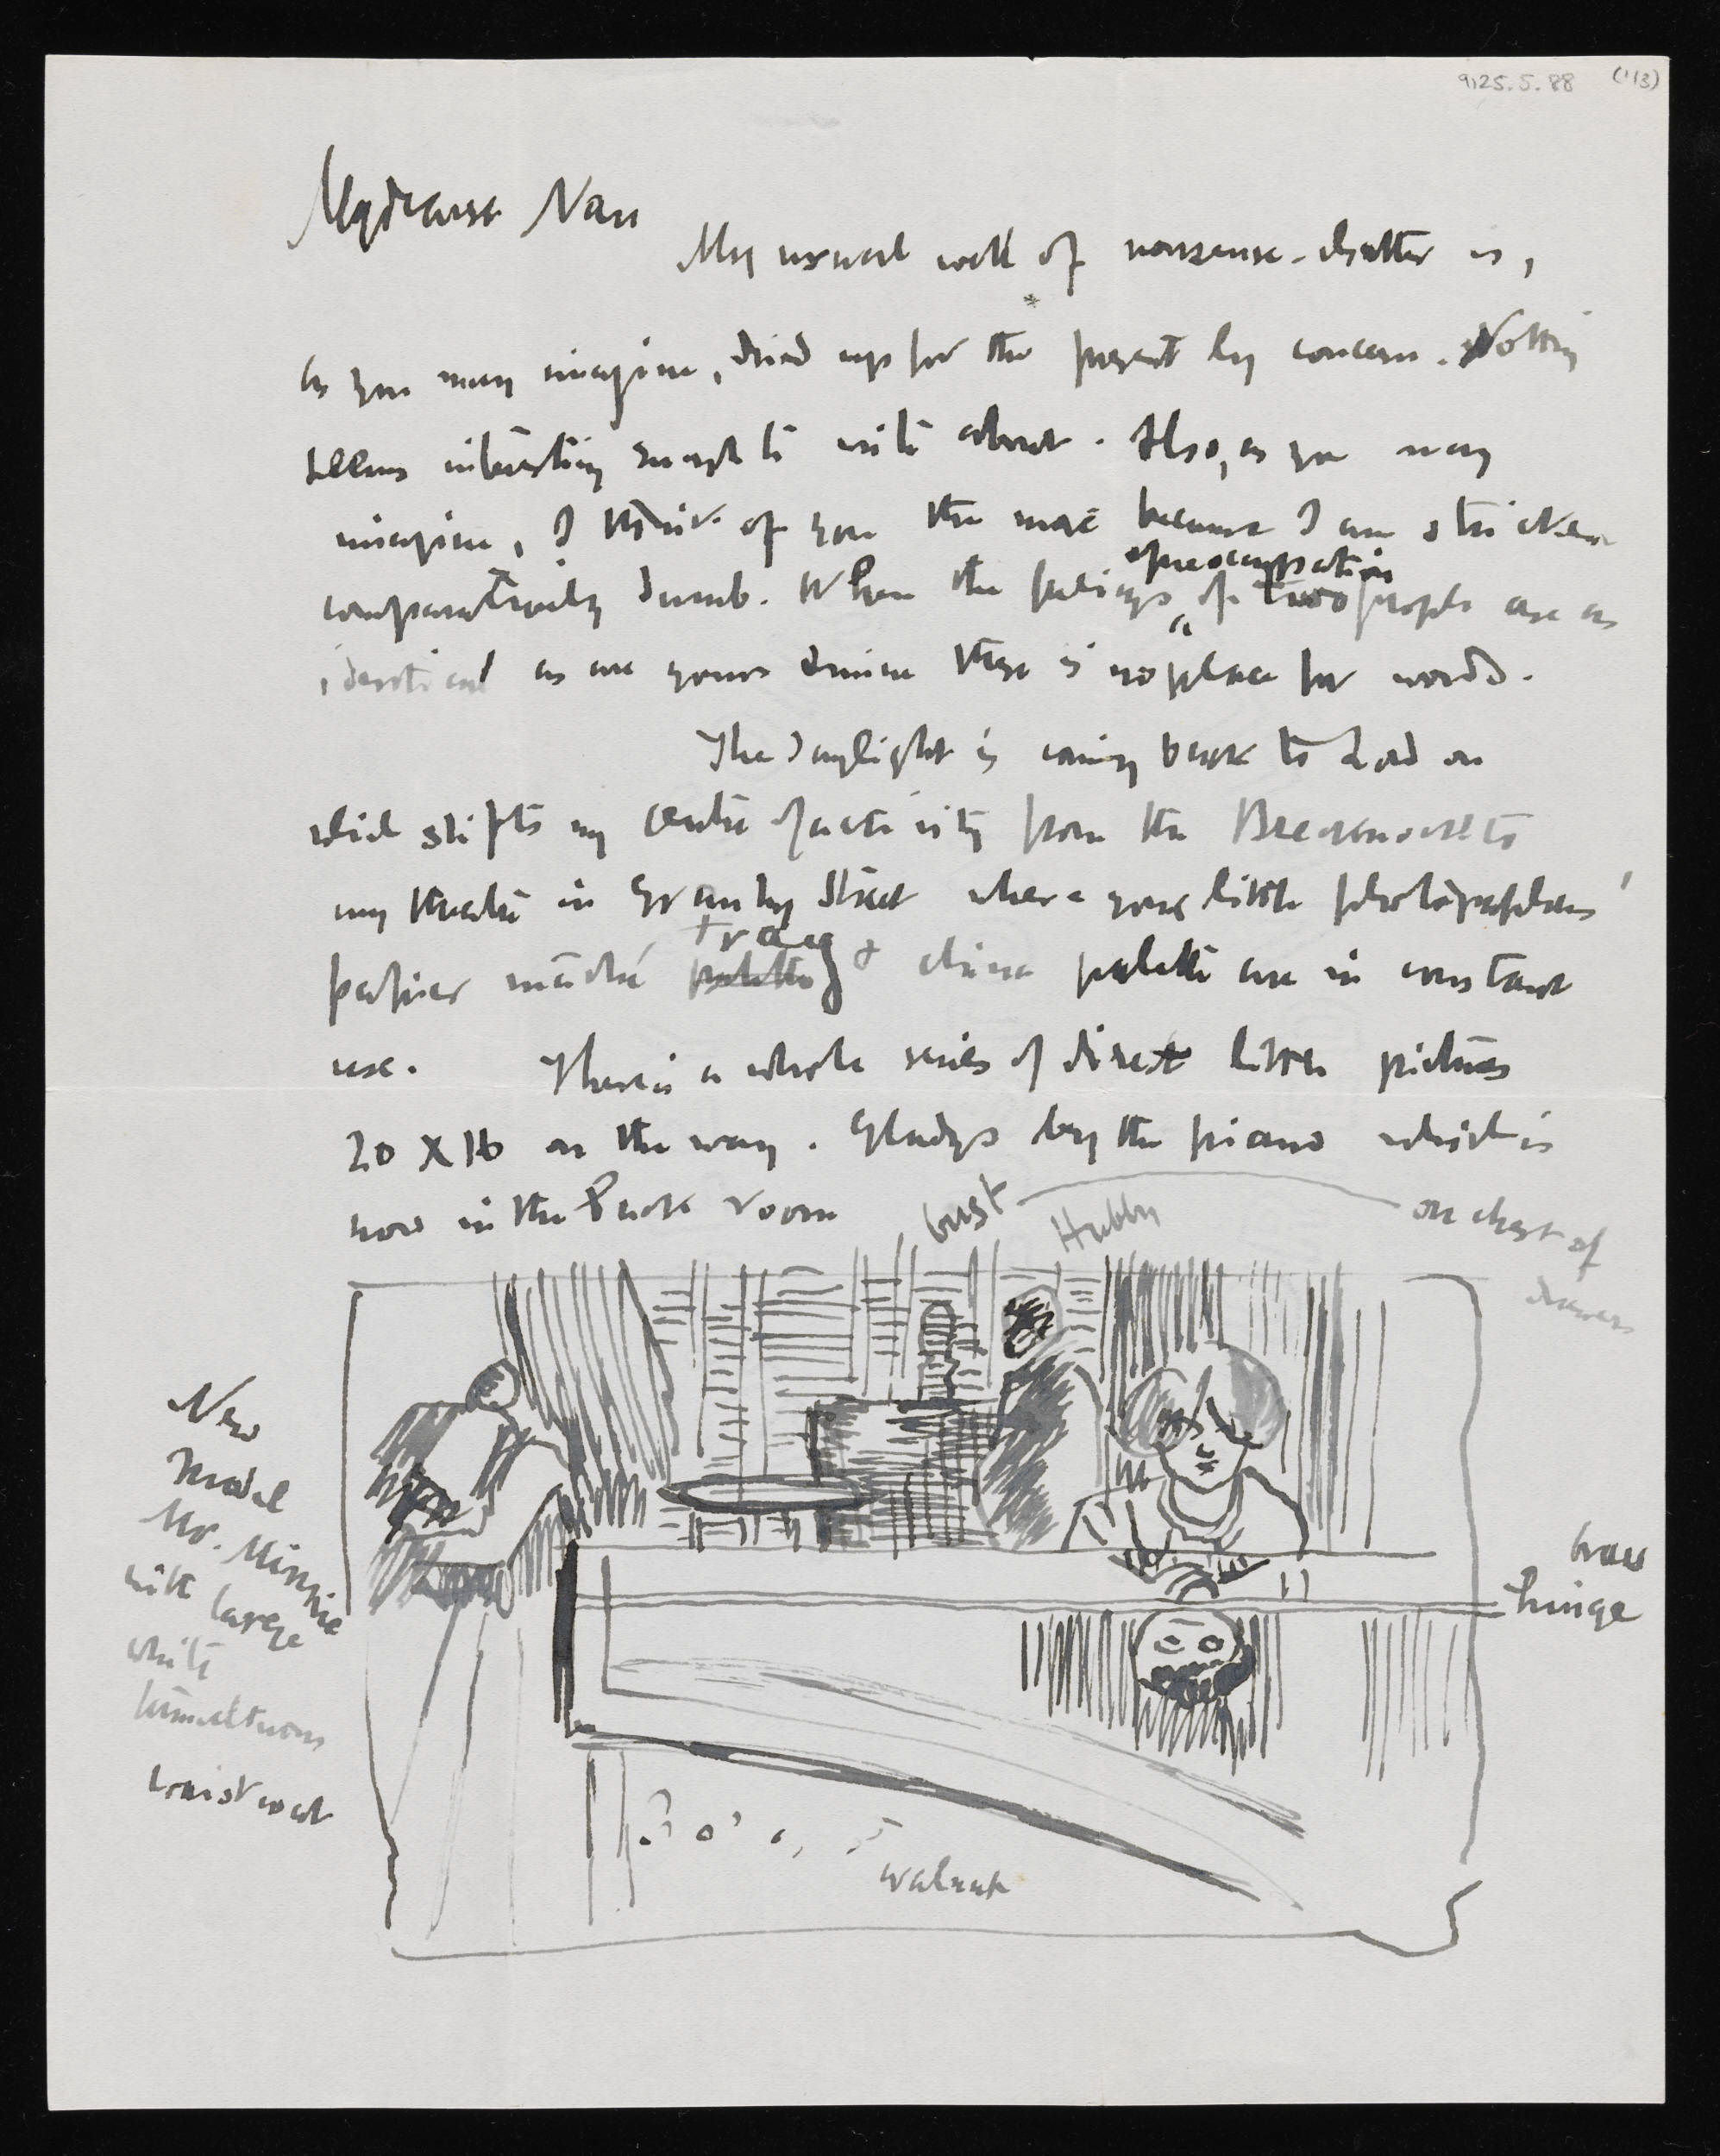 9125.5.88 (1/3)
My dearest Nan
My usual well of nonsense-chatter is,
as you may imagine, dried up for the present by concern. Nothing
seems interesting enough to write about. Also, as you may
imagine, I think of you the more because I am stricken
comparatively dumb. When the feelings & preoccupation of two people are as
identical as are yours & mine there is no place for words.
The daylight is coming back to London
which shifts my centre of activity from the Brecknock to
my theatre in Granby Street where your little photographers'
papier mâché tray & china palette are in constant
use. There is a whole series of direct little pictures
20 X 16 on the way. Gladys by the piano which is
now in the back room
bust
Hubby
on chest of
drawers
New
Model
Mr. Minnie
with large
white
tumultuous
waistcoat
brass
hinge
walnut